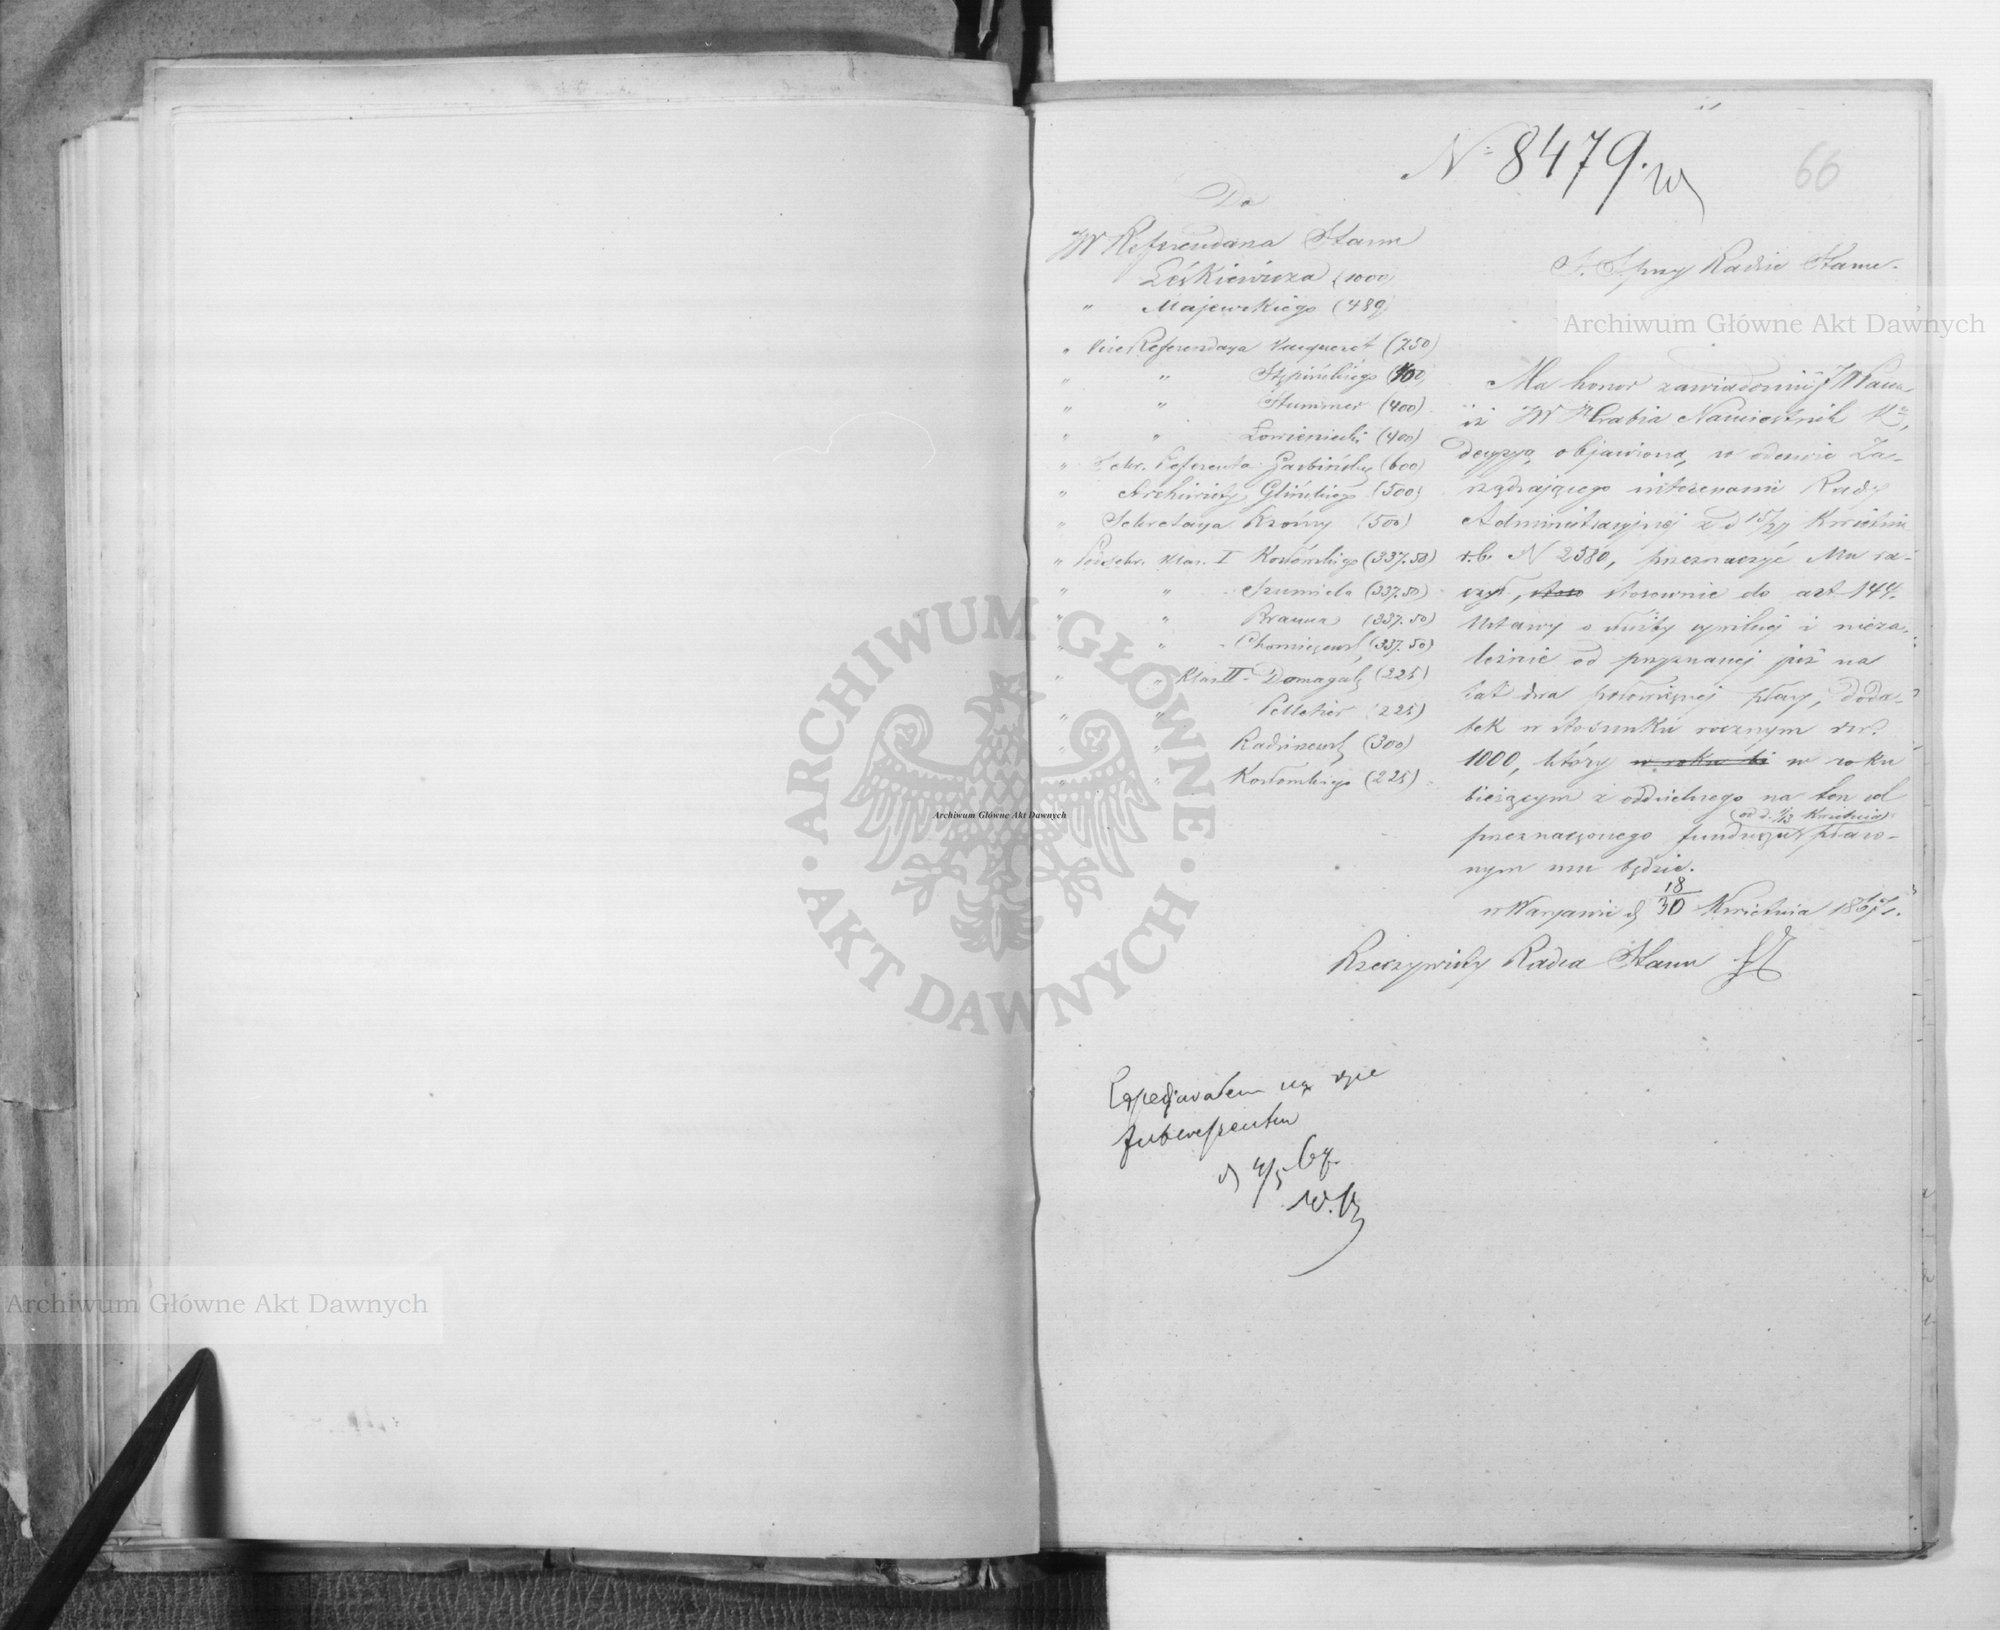 N: 8479.
66
Do
JW Referendarza Stanu
Leśkiewicza (1000)
" Majewskiego (489)
" Vice Referendarza (750)
" " Stępińskiego (400)
" " Stummer (400)
" " Łowieniecki (400)
" Sekr. Referenta Garbińskiego (600)
" Archiwisty Glińskiego (500)
" Sekretarza (500)
" Podsekr. klas. I Kosłowskiego (337.50)
" " Szumiela (337.50)
" " Brauna (337.50)
" " (337.50)
" " klas. II Domagalski (225)
" " Pelletier (225)
" " Radziszewski (300)
" " Kosłowskiego (225)
S. S. przy Radzie Stanu.
Ma honor zawiadomić JWPana
iż JW Hrabia Namiestnik K.,
decyzją objawioną w odezwie Za-
rządzającego interesami Rady
Administracyjnej z d 15/27 Kwietnia
r.b. N 2580, przeznaczyć Mu ra-
czył, stoso stosownie do art 144.
Ustawy o służby cywilnej i nieza-
leżnie od przyznanej już na
lat dwa płacy, doda-
tek w stosunku rocznym rsr.
1000, który w roku bi w roku
bieżącym z oddzielnego na ten cel
od d. 1/13 Kwietnia
przeznaczonego funduszu płaco-
nym mu będzie.
w Warszawie d 18/30 Kwietnia 1867 r.
Rzeczywisty Radca Stanu
Expedjowałem na ręce
d 4/5 67.
Archiwum Główne Akt Dawnych
Archiwum Główne Akt Dawnych
Archiwum Główne Akt Dawnych
ARCHIWUM GŁÓWNE · AKT DAWNYCH ·